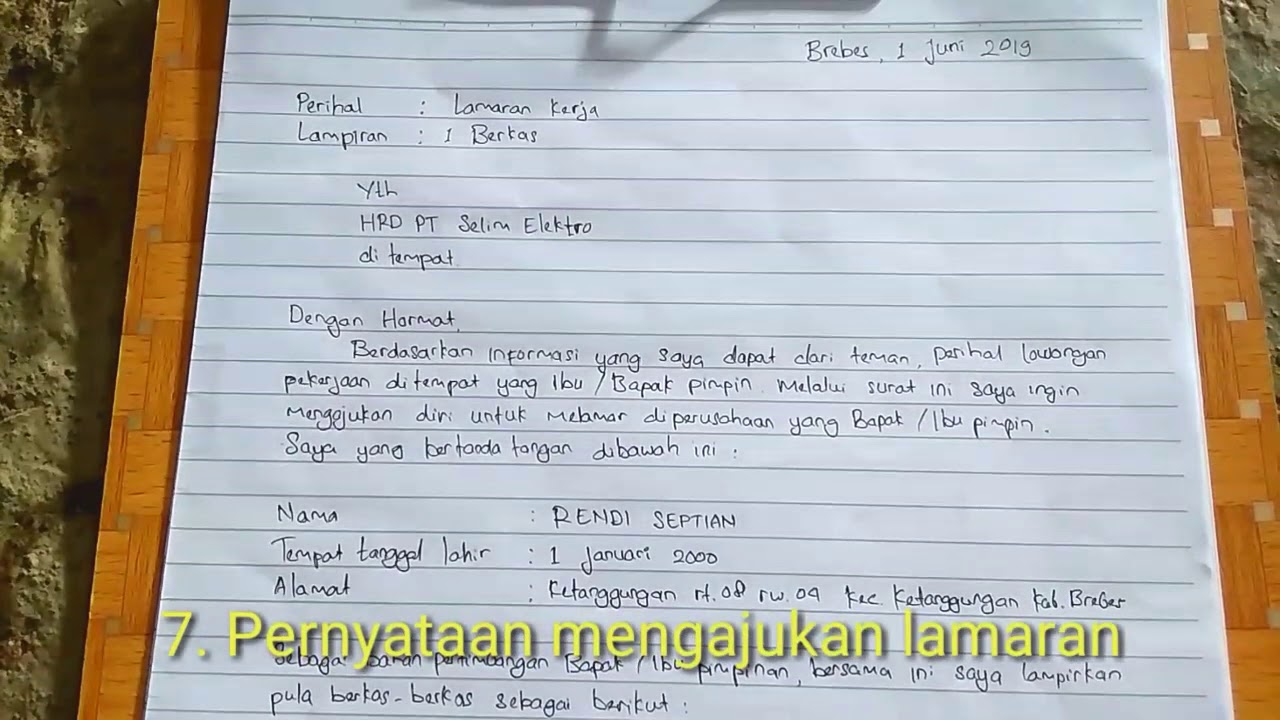 Brebes, 1 Juni 2019
Perihal : Lamaran Kerja
Lampiran : 1 Berkas
Yth
HRD PT Selim Elektro
di tempat.
Dengan Hormat,
Berdasarkan informasi yang saya dapat dari teman, perihal lowongan
pekerjaan ditempat yang Ibu / Bapak pimpin. Melalui surat ini saya ingin
mengajukan diri untuk melamar diperusahaan yang Bapak / Ibu pimpin.
Saya yang bertanda tangan dibawah ini :
Nama : RENDI SEPTIAN
Tempat tanggal lahir : 1 Januari 2000
Alamat : Ketanggungan rt.08 rw.04 kec Ketanggungan kab. Brebes
7. Pernyataan mengajukan lamaran
Sebagai bahan pertimbangan Bapak / Ibu pimpinan, bersama ini saya lampirkan
pula berkas-berkas sebagai berikut :